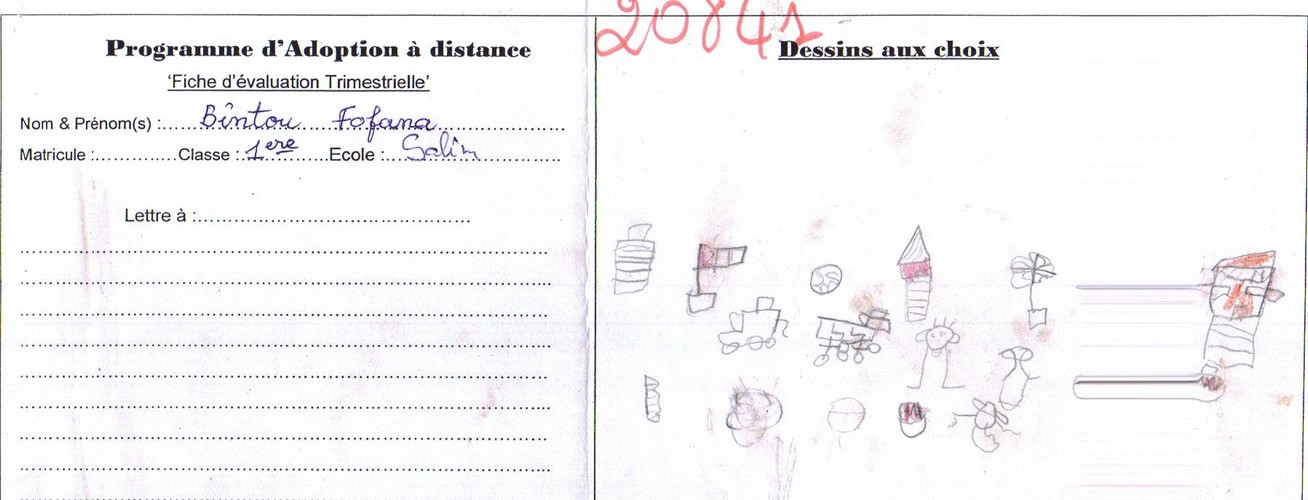 Programme d'Adoption à distance
'Fiche d'évaluation Trimestrielle'
Nom & Prénom(s) :......Bintou Fofana......................
Matricule :..............Classe : 1ere.......Ecole :...Salim..............
Lettre à :..............................................
20841
Dessins aux choix